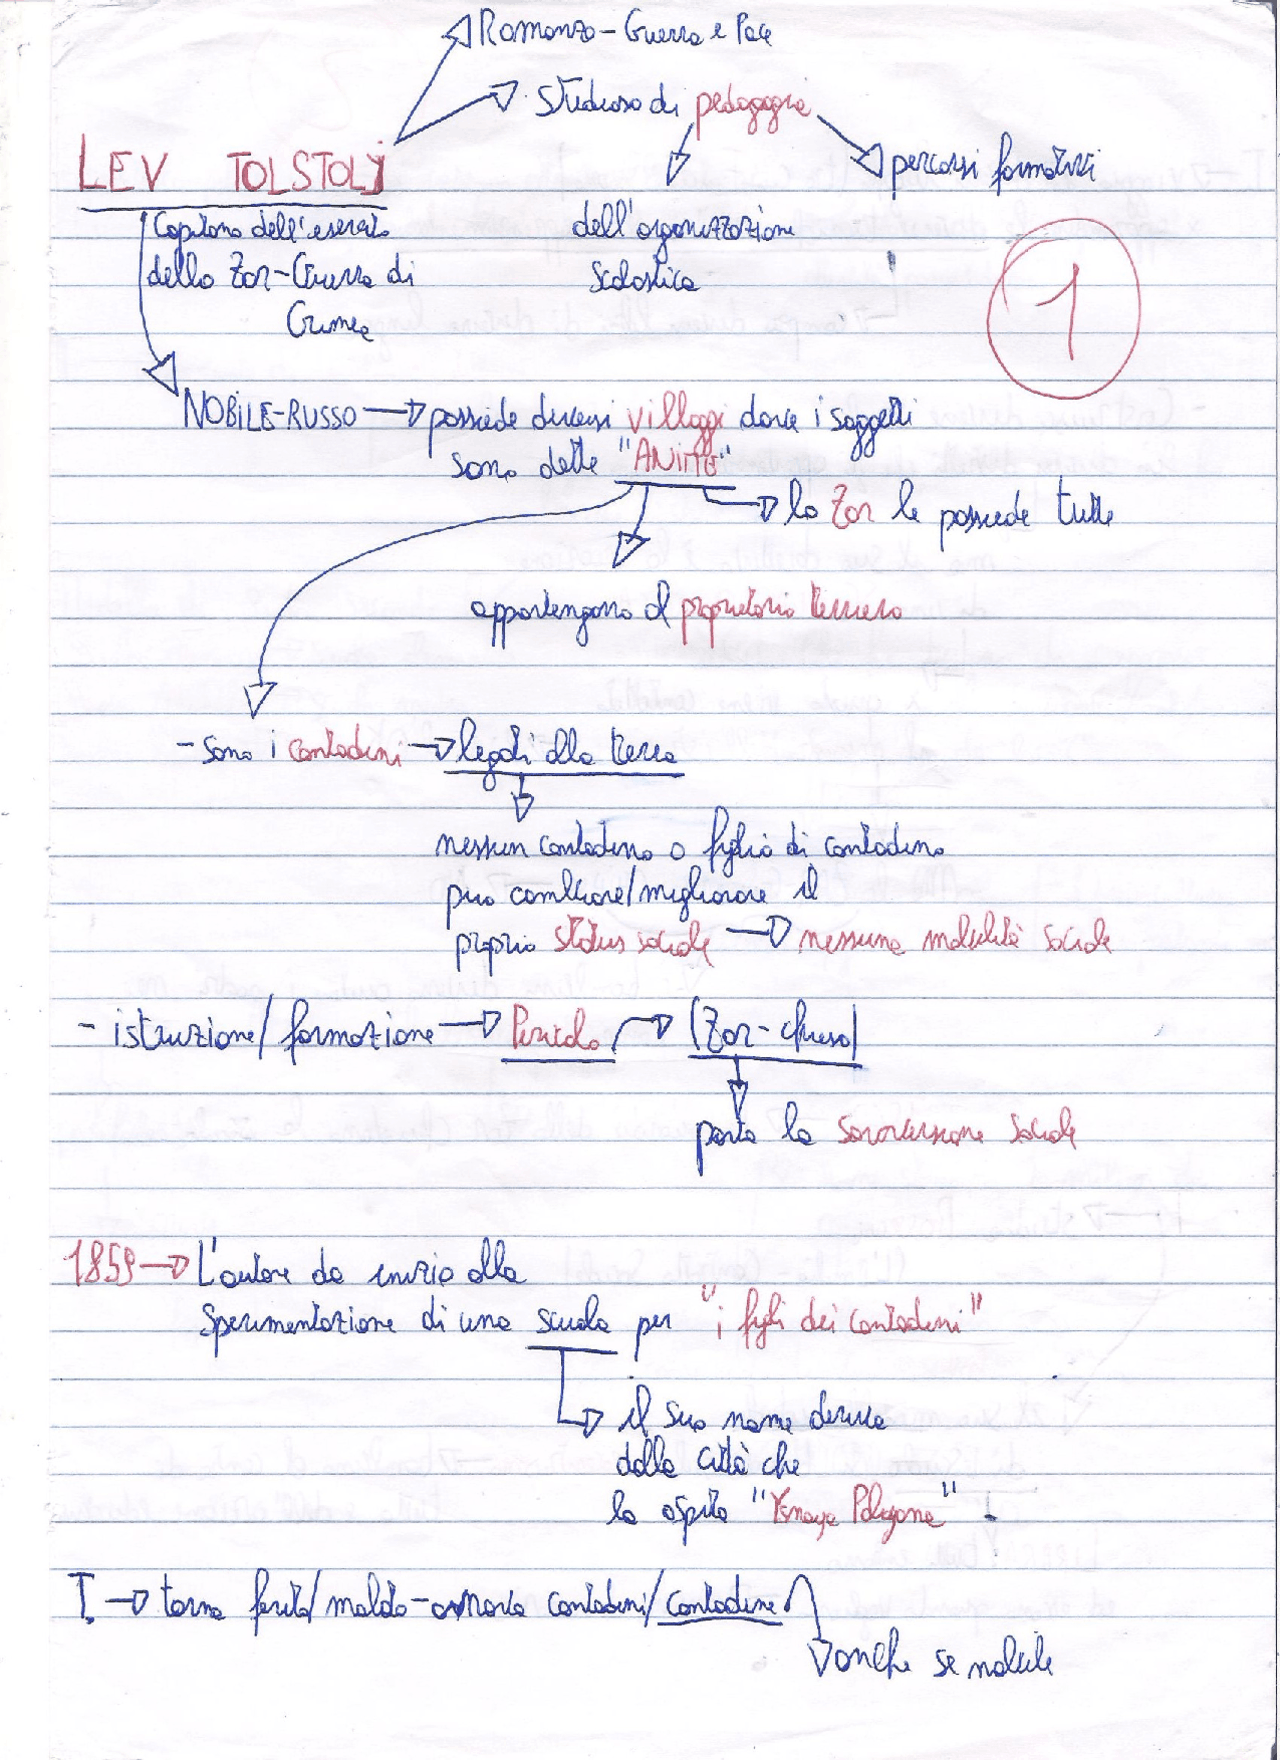 Romanzo-Guerra e Pace
Studioso di pedagogia
LEV TOLSTOLJ
percorsi formativi
Capitano dell'esercito
dello Zar-Guerra di
Crimea
dell'organizzazione
scolastica
1
NOBILE-RUSSO possiede diversi villaggi dove i soggetti
sono dette "ANIME"
lo Zar le possiede tutte
appartengono al proprietario terriero
- sono i contadini legati alla terra
nessun contadino o figlio di contadino
può cambiare/migliorare il
proprio status sociale nessuna mobilità sociale
- istruzione/formazione Pericolo (Zar-chiesa)
porta la sovversione sociale
1859 L'autore da inizio alla
Sperimentazione di una scuola per "i figli dei contadini"
il suo nome deriva
dalla città che
la ospita "Yasnaya Polyana"
T. torna ferito/malato- contadini/contadine
anche se nobile